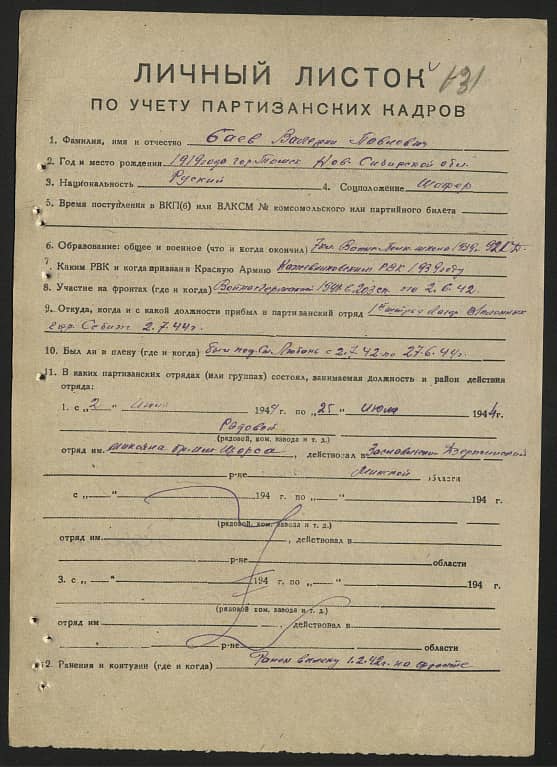 131
ЛИЧНЫЙ ЛИСТОК
ПО УЧЕТУ ПАРТИЗАНСКИХ КАДРОВ
1. Фамилия, имя и отчество Баев Валерян Павлович
2. Год и место рождения 1919 года гор. Томск Нов-Сибирской обл.
3. Национальность Руский 4. Соцположение Шофер
5. Время поступления в ВКП(б) или ВЛКСМ № комсомольского или партийного билета
6. Образование: общее и военное (что и когда окончил) 7 кл.
7. Каким РВК и когда призван в Красную Армию Кожевниковским РВК 1939 году
8. Участие на фронтах (где и когда) 2.6.42.
9. Откуда, когда и с какой должности прибыл в партизанский отряд
2.7.44 г.
10. Был ли в плену (где и когда) Был под с 2.7.42 по 27.6.44 г.
11. В каких партизанских отрядах (или группах) состоял, занимаемая должность и район действия
отряда:
1. с „2 " 1944 г. по „25 " Июля 1944 г.
Рядовой
(рядовой, ком. взвода и т. д.)
отряд им. Щорса, действовал в Дзержинский
р-не Минской области
с „ — " 194 г. по „ — " 194 г.
(рядовой, ком. взвода и т. д.)
отряд им. , действовал в
р-не области
3. с „ — " 194 г. по „ — " 194 г.
(рядовой, ком. взвода и т. д.)
отряд им , действовал в
р-не области
12. Ранения и контузии (где и когда) Ранен 1.2.42 г. на фронте